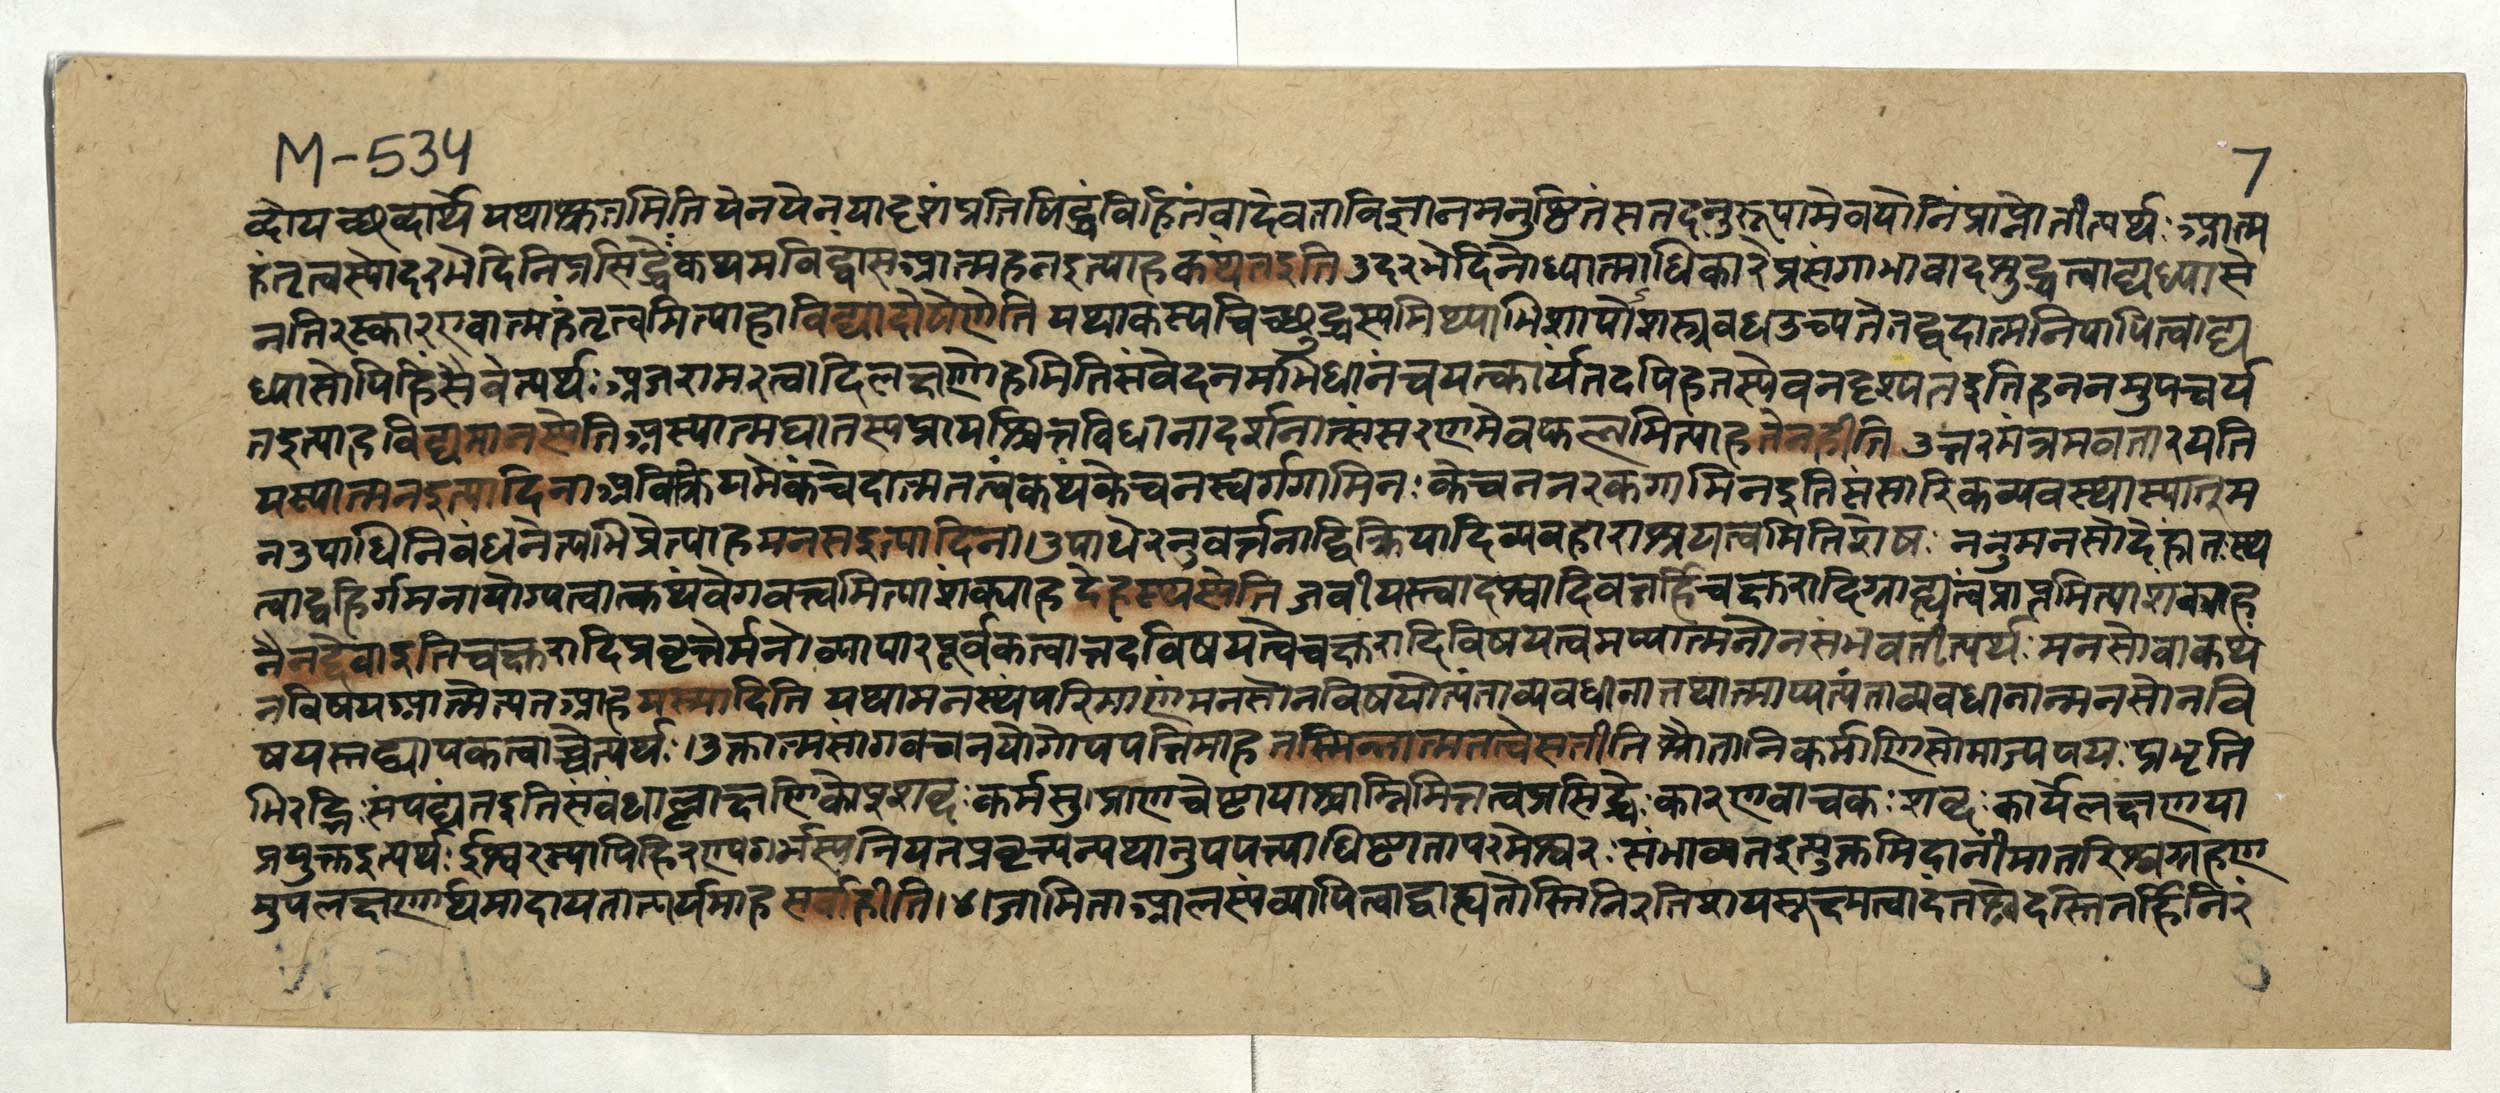 M-534
7
ब्दोयच्छब्दार्थे यथाश्रुतमिति येनयेन यादृशं प्रतिषिद्धं विहितं वा देवताविज्ञानमनुष्ठितं स तदनुरूपामेव योनिं प्राप्नोतीत्यर्थः आत्म
हंतृत्वस्योदरभेदिनि प्रसिद्धेः कथमविद्वांस आत्महन इत्याह कथं त इति उदरभेदिनो ध्यात्माधिकारे प्रसंगाभावादशुद्धत्वाद्यध्यासे
नतिरस्कार एवात्महंतृत्वमित्याहाविद्यादोषेणेति यथाकस्यचिच्छुद्धस्यमिथ्याभिशापोऽशस्त्रवध उच्यते तद्वदात्मनिपापित्वाद्य
ध्यासोपि हिंसैवेत्यर्थः अजरामरत्वादिलक्षणोहमिति संवेदनमभिधानं च यत्कार्यं तदपि हतस्येव न दृश्यत इति हननमुपचर्य
त इत्याह विद्यमानस्येति अस्यात्मघातस्य प्रायश्चित्तविधानादर्शनात्संसरणमेव फलमित्याह तेन हीति उत्तरमंत्रमवतारयति
यस्यात्मन इत्यादिना अविक्रियमेकं चेदात्मतत्वं कथं केचन स्वर्गगामिनः केचन नरकगामिन इति संसारिकव्यवस्थास्यात्तम
न उपाधिनिबंधनेत्यभिप्रेत्याह मनस इत्यादिना। उपाधेरनुवर्त्तनाद्विक्रियादिव्यवहाराश्रयत्वमितिशेषः ननुमनसो देहांतःस्थ
त्वाद्वहिर्गमनायोग्यत्वात्कथं वेगवत्त्वमित्याशंक्याह देहस्थस्येति जवीयस्त्वादश्वादिवत्तर्हि चक्षुरादिग्राह्यत्वं प्राप्तमित्याशंक्याह
नैनद्देवाइति चक्षुरादिप्रवृत्तेर्मनोव्यापारपूर्वकत्वात्तदविषयत्वे चक्षुरादिविषयत्वमप्यात्मनो न संभवतीत्यर्थः मनसो वा कथं
न विषय आत्मेत्यत आह यस्मादिति यथामनस्थं परिमाणं मनसो न विषयोत्यंताव्यवधानात्तथात्माप्यत्यंताव्यवधानान्मनसो न वि
षयस्तद्व्यापकत्वाच्चेत्यर्थः। उक्तात्मसांगवचनयोगोपपत्तिमाह तस्मिन्नात्मतत्वेसतीति श्रौतानिकर्माणि सोमाज्यपयः प्रभृति
भिरद्भिः संपद्यंत इति संबंधाल्लाक्षणिकोप्शब्दः कर्मसु। प्राणचेष्टायाश्चाम्निमित्तत्वप्रसिद्धेः कारणवाचकः शब्दः कार्येलक्षणया
प्रयुक्त इत्यर्थः ईश्वरस्यापि हिरण्यगर्भस्य नियतप्रवृत्त्यन्यथानुपपत्त्याधिष्ठातापरमेश्वरः संभाव्यत इत्युक्तमिदानीं मातरिश्वग्रहण
मुपलक्षणार्थमादाय तात्पर्यमाह सर्वाहीति।४। जामितां आलस्यं व्यापित्वाद्वाह्यतोस्ति निरतिशयसूक्ष्मत्वादंतश्चेदस्ति तर्हि निरं